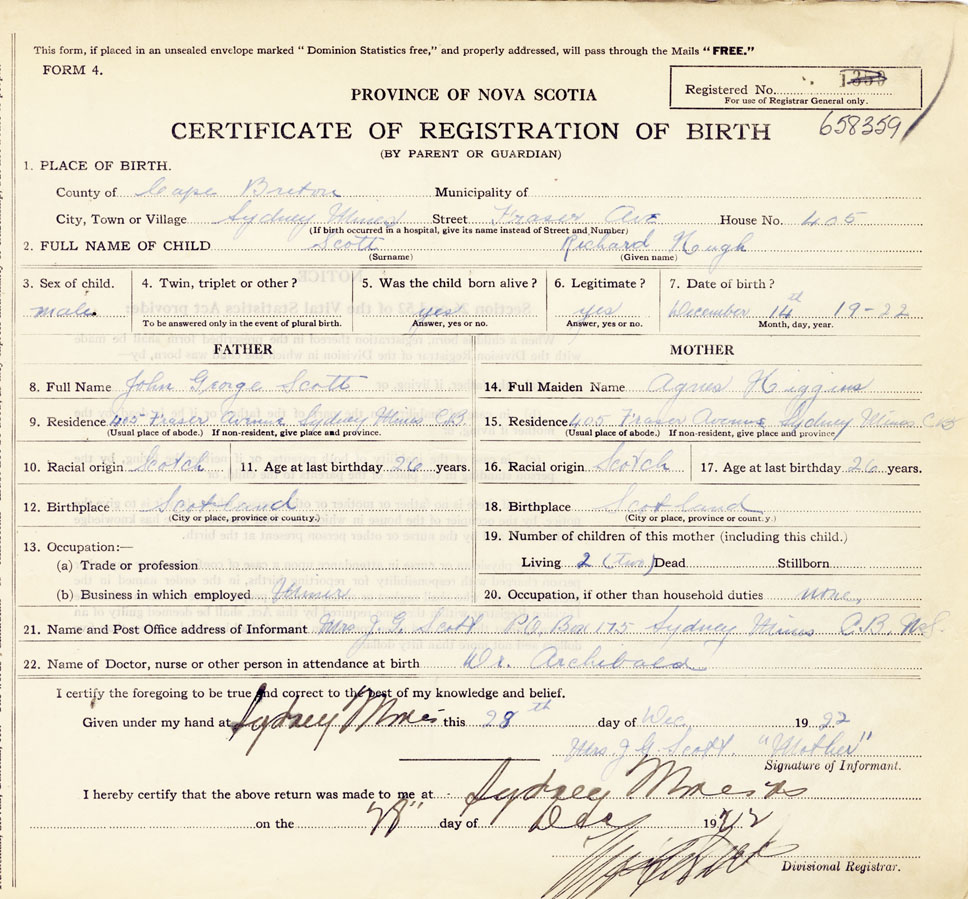 This form, if placed in an unsealed envelope marked “ Dominion Statistics free,” and properly addressed, will pass through the Mails “ FREE.”
FORM 4.
Registered No. 1350
For use of Registrar General only.
PROVINCE OF NOVA SCOTIA
CERTIFICATE OF REGISTRATION OF BIRTH 658359
(BY PARENT OR GUARDIAN)
1. PLACE OF BIRTH.
County of Cape Breton Municipality of
City, Town or Village Sydney Mines Street Fraser Ave House No. 405
(If birth occurred in a hospital, give its name instead of Street and Number)
2. FULL NAME OF CHILD Scott Richard Hugh
(Surname) (Given name)
3. Sex of child. 4. Twin, triplet or other? 5. Was the child born alive? 6. Legitimate? 7. Date of birth?
male. yes yes December 14th 19-22
To be answered only in the event of plural birth. Answer, yes or no. Answer, yes or no. Month, day, year.
FATHER MOTHER
8. Full Name John George Scott 14. Full Maiden Name Agnes Higgins
9. Residence 405 Fraser Avenue Sydney Mines C.B. 15. Residence 405 Fraser Avenue Sydney Mines C B
(Usual place of abode.) If non-resident, give place and province. (Usual place of abode.) If non-resident, give place and province
10. Racial origin Scotch 11. Age at last birthday 26 years. 16. Racial origin Scotch 17. Age at last birthday 26 years.
12. Birthplace Scotland 18. Birthplace Scotland
(City or place, province or country.) (City or place, province or country.)
13. Occupation:— 19. Number of children of this mother (including this child.)
(a) Trade or profession Living 2 (Two) Dead Stillborn
(b) Business in which employed Miner 20. Occupation, if other than household duties none
21. Name and Post Office address of Informant Mrs J. G. Scott P.O. Box 175 Sydney Mines C.B. N.S.
22. Name of Doctor, nurse or other person in attendance at birth Dr. Archibald
I certify the foregoing to be true and correct to the best of my knowledge and belief.
Given under my hand at Sydney Mines this 28th day of Dec 1922
Mrs J G Scott. "Mother"
Signature of Informant.
I hereby certify that the above return was made to me at Sydney Mines
on the 28" day of Dec 1922
Divisional Registrar.